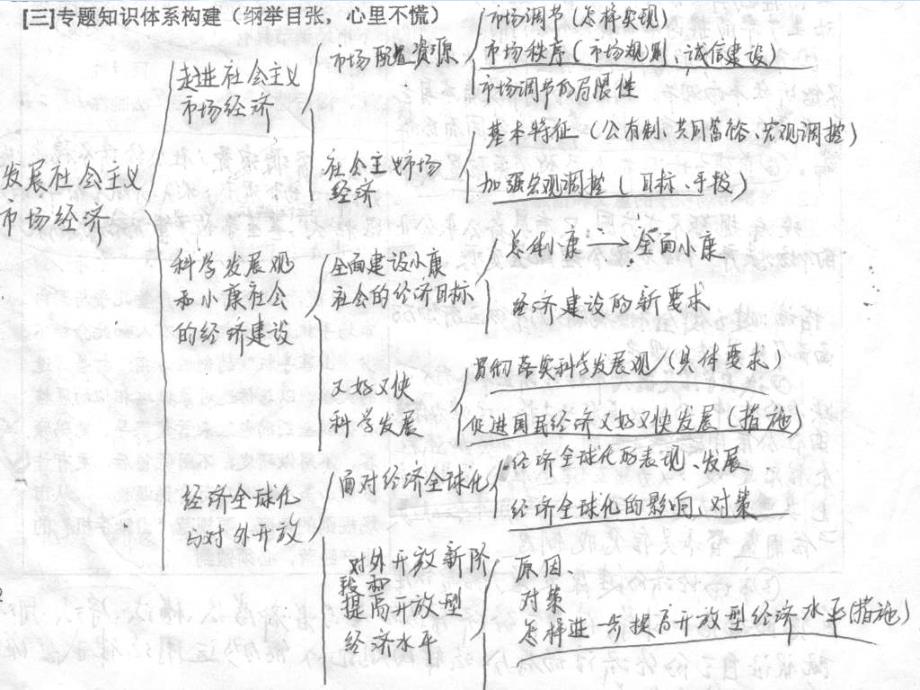 [三]专题知识体系构建（纲举目张，心里不慌）
发展社会主义
市场经济
走进社会主义
市场经济
市场配置资源
市场调节（怎样实现）
市场秩序（市场规则、诚信建设）
市场调节的局限性
社会主义市场
经济
基本特征（公有制、共同富裕、宏观调控）
加强宏观调控（目标、手段）
科学发展观
和小康社会
的经济建设
全面建设小康
社会的经济目标
总体小康→全面小康
经济建设的新要求
又好又快
科学发展
贯彻落实科学发展观（具体要求）
促进国民经济又好又快发展（措施）
经济全球化
与对外开放
面对经济全球化
经济全球化的表现、发展
经济全球化的影响、对策
对外开放新阶
段
提高开放型
经济水平
原因、
对策
怎样进一步提高开放型经济水平(措施)